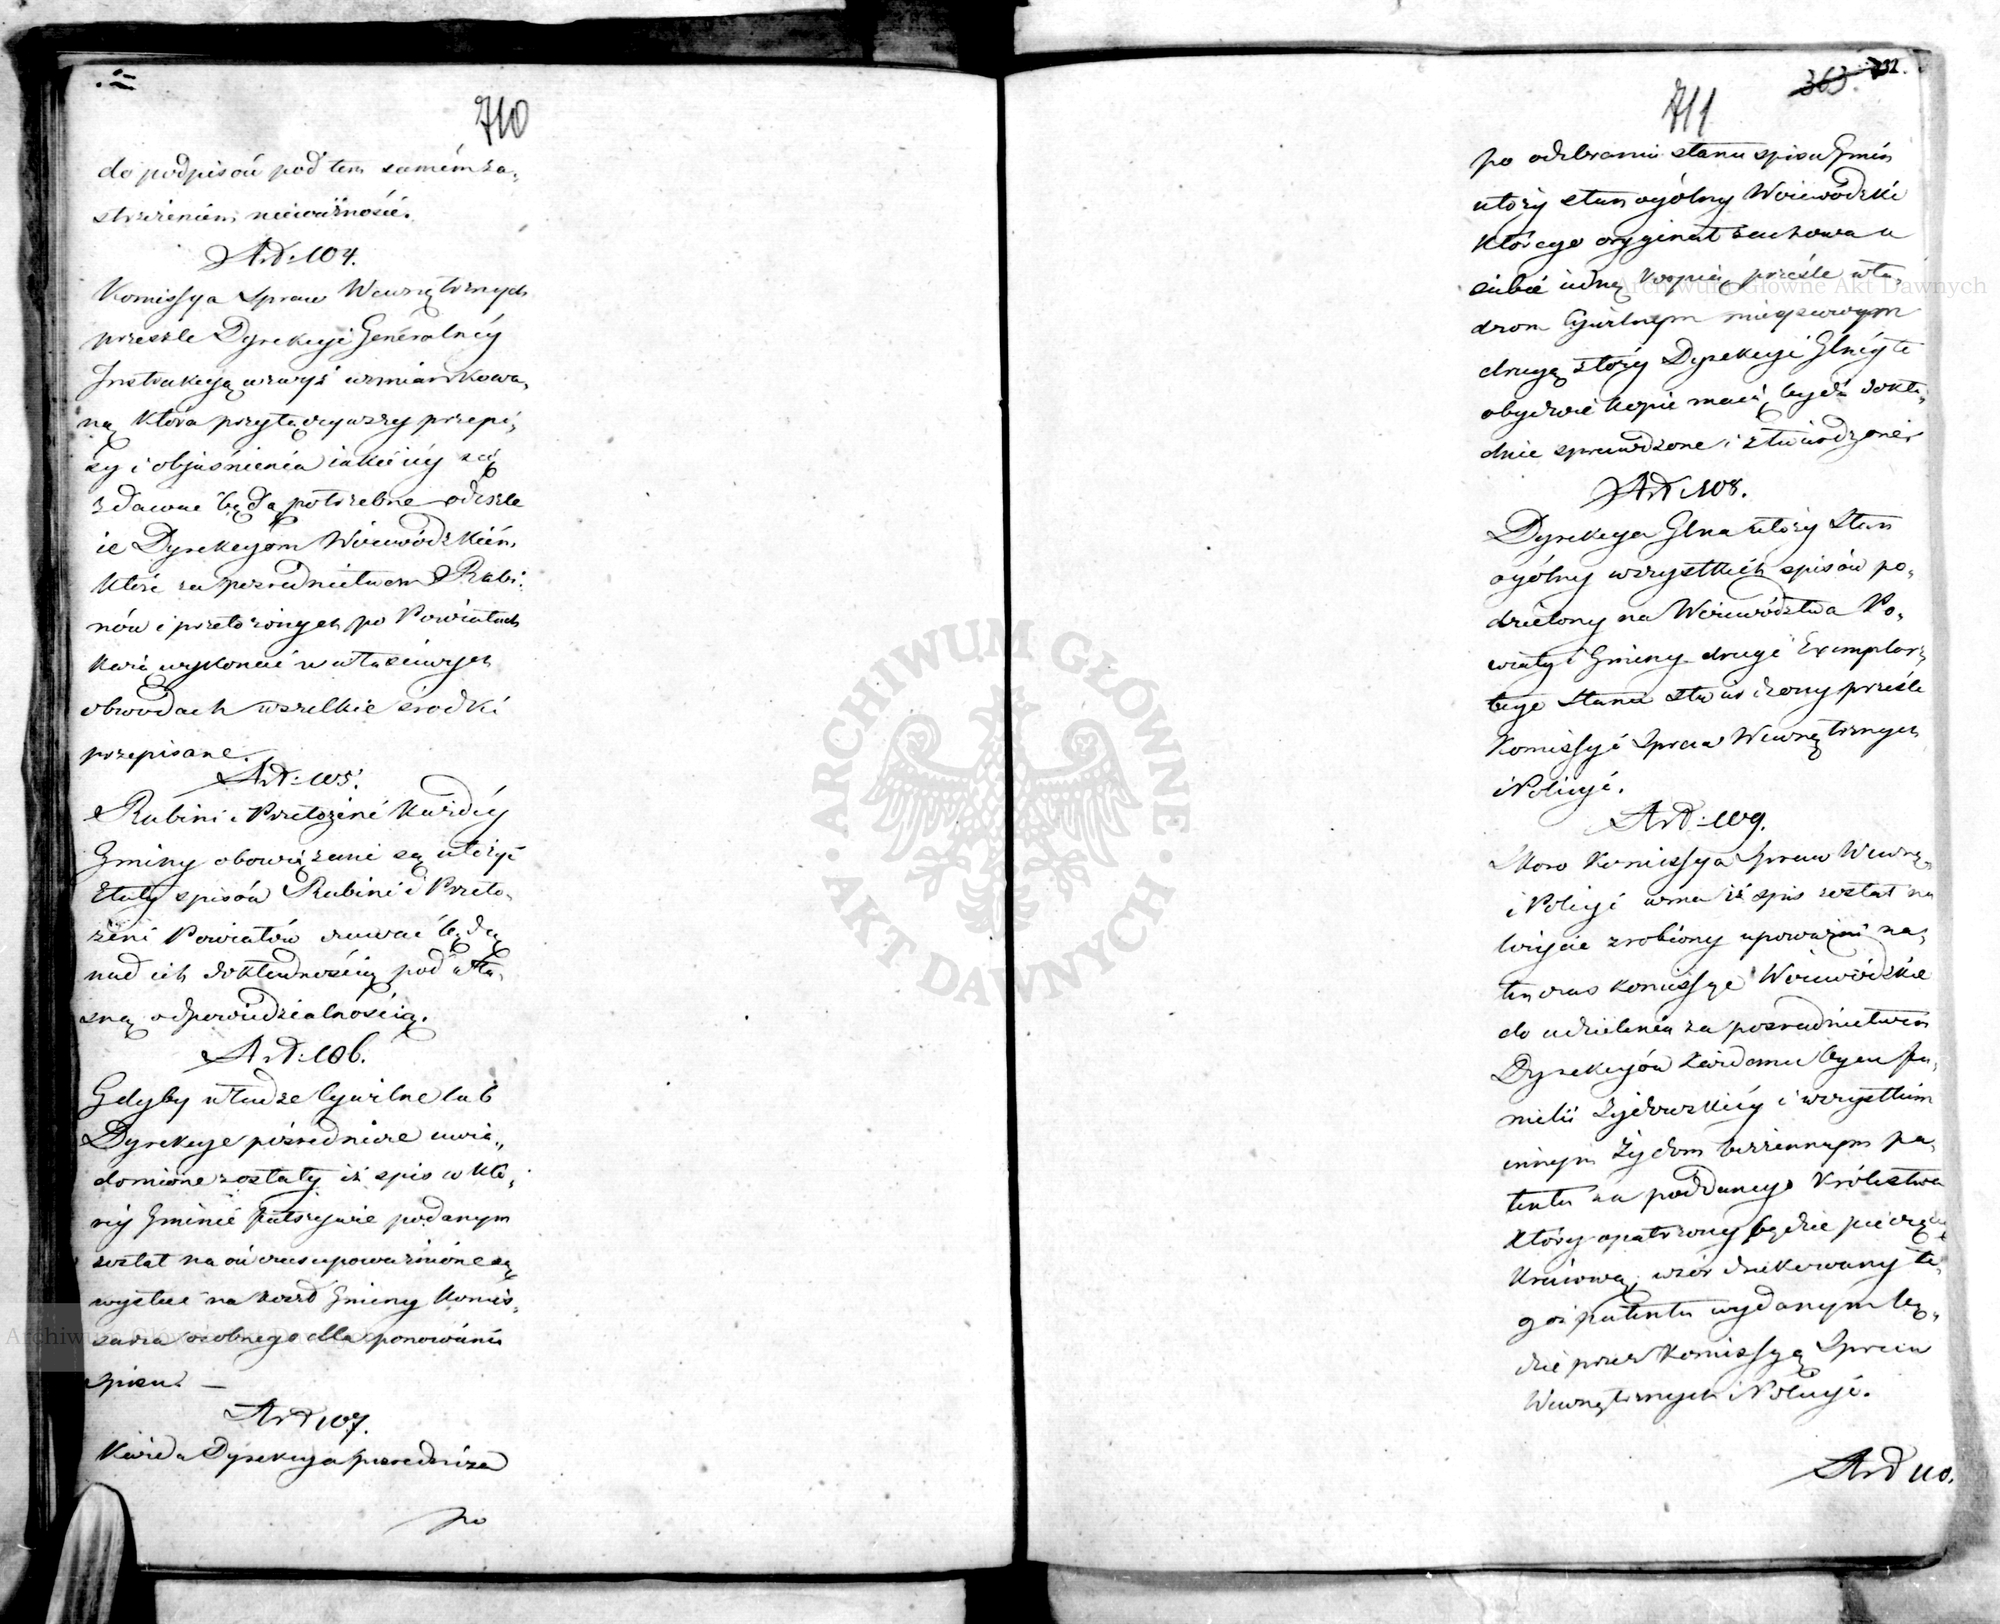 710
do podpisów pod tem samém za,
strzeżeniem nieważności.
Art: 104.
Komissya Spraw Wewnętrznych
prześle Dyrekcyi Generalnéy
Instrukcyą wzwyż wzmiankowa,
ną która przyłączywszy przepi,
sy i objaśnienia iakie iéy się
zdawać będą potrzebne odeszle
ie Dyrekcyom Woiewódzkim,
które za pośrednictwem Rabi,
nów i przełożonych po Powiatach
każą wykonać w właściwych
obwodach wszelkie środki
przepisane.
Art: 105.
Rabini i Przełożeni każdéy
Gminy obowiązani są ułożyć
Etaty spisów Rabini i Przeło,
żeni Powiatów czuwać będą
nad ich dokładnością pod wła,
sną odpowiedzialnością.
Art: 106.
Gdyby władze Cywilne lub
Dyrekcye pośrednicze uwia,,
domione zostały iż spis w któ,
réy Gminie fałszywie podanym
został na ów czas upoważnione są
wysłać na koszt Gminy Komis,
sarza osobnego dla ponowienia
spisu. —
Art 107.
Każda Dyrekcya pośrednicza
po
363. 732.
711
po odebraniu stanu spisu Gmin
ułoży stan ogólny Woiewódzki
którego oryginał zachowa u
siebie iedną kopią prześle wła,
dzom Cywilnym mieyscowym
drugą złoży Dyrekcyi Glnéy te
obydwie kopie maią bydź dokła,
dnie sprawdzone i stwierdzone.
Art: 108.
Dyrekcya Glna ułoży Stan
ogólny wszystkich spisów po,
dzielony na Woiewództwa Po,
wiaty i Gminy drugi Exemplarz
tego Stanu stwierdzony prześle
Komissyi Spraw Wewnętrznych
i Policyi.
Art: 109.
Skoro Komissya Spraw Wewnę,
i Policyi uzna iż spis został na
leżycie zrobiony upoważni na,
tenczas Komissye Woiewódzkie
do udzielenia za pośrednictwem
Dyrekcyów każdemu Oycu fa,
milii Żydowskiéy i wszystkim
innym Żydom bezżennym pa,
tentu na poddanego Królestwa
który opatrzony będzie pieczęcią
Kraiową, wzór drukowany te,
goż patentu wydanym bę,
dzie przez Komissyą Spraw
Wewnętrznych i Policyi.
Art 110.
Archiwum Główne Akt Dawnych
Archiwum Główne Akt Dawnych
ARCHIWUM GŁÓWNE
AKT DAWNYCH